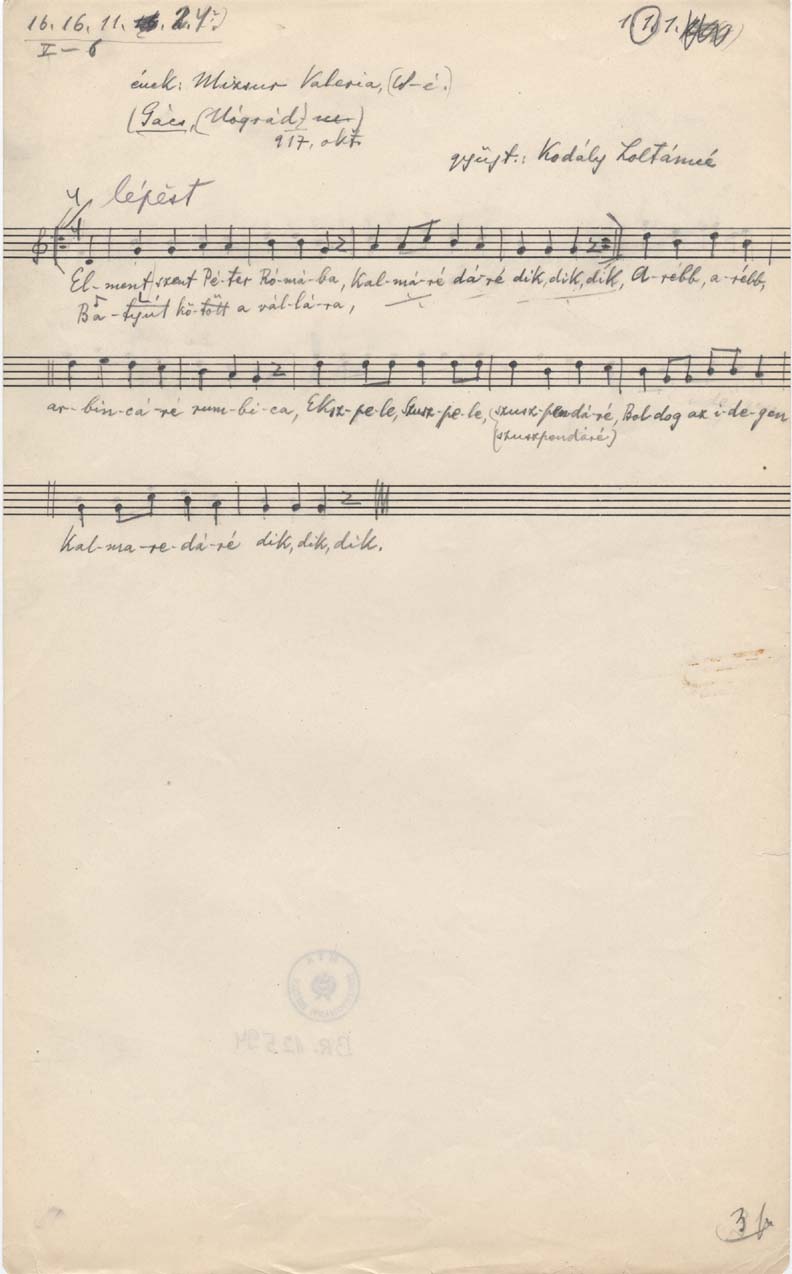 16. 16. 11. 2. 4.
1 1 1.
V – 6
ének: Mizsur Valeria,
(Gács, (Nógrád)
917. okt.
gyűjt.: Kodály Zoltánné
lépést
El-ment szent Pé-ter Ró-má-ba, Kal-má-ré dá-ré dik, dik, dik, A-rébb, a-rébb,
Ba-tyút kö-tött a vál-lá-ra,
ar-bin-cá-ré rum-bi-ca, Eksz-pe-le, Szusz-pe-le, szusz-pen-dá-ré, Bol-dog az i-de-gen
(szuszpendáré)
Kal-ma-re-dá-ré dik, dik, dik.
BR. 12594